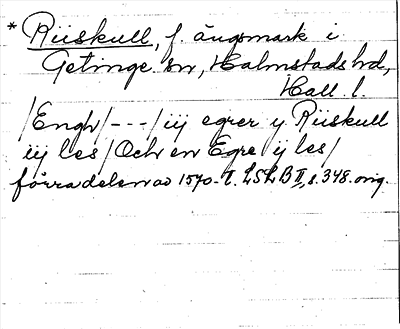 * Riiskull, f. ängsmark i
Getinge sn, Halmstads hd,
Hall. l.
/Engh/ --- / iij egrer y Riiskull
iij les / Och en Egre ij les /
förra delen av 1570-t. LSLB II, s. 348. orig.